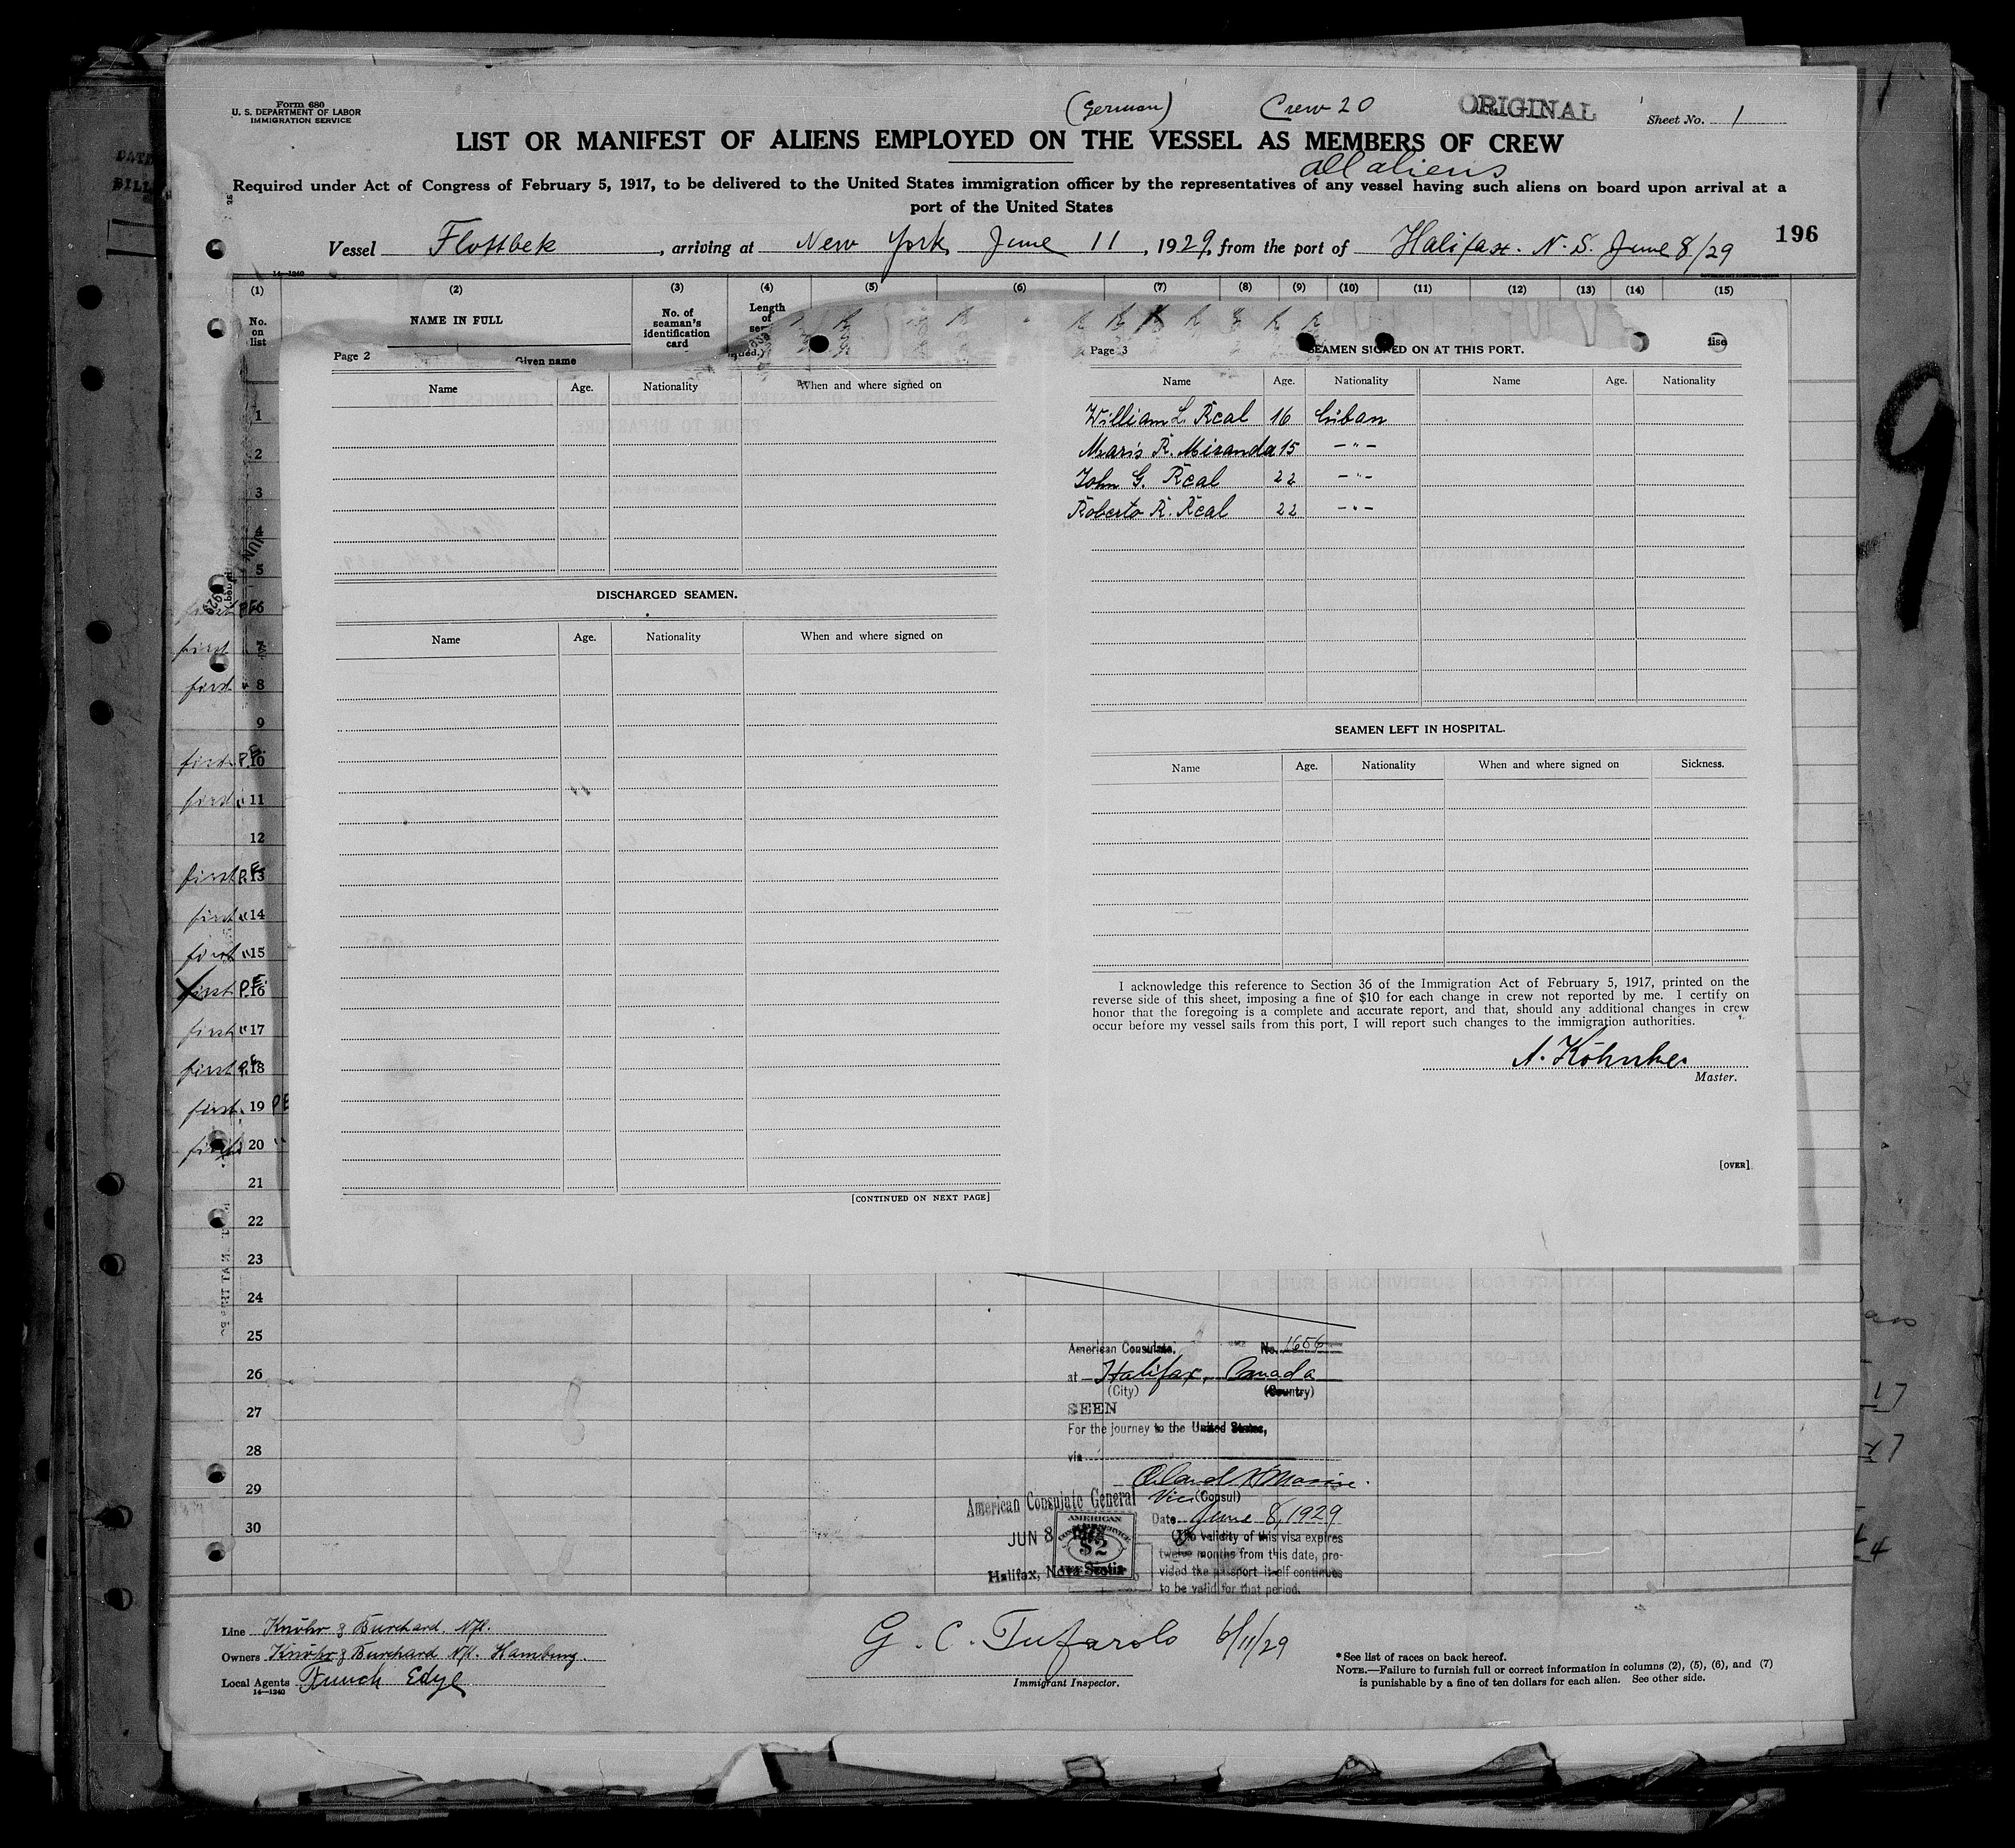 Form 680
U. S. DEPARTMENT OF LABOR
IMMIGRATION SERVICE
(German)
Crew 20
ORIGINAL
Sheet No. 1
LIST OR MANIFEST OF ALIENS EMPLOYED ON THE VESSEL AS MEMBERS OF CREW
all aliens
Required under Act of Congress of February 5, 1917, to be delivered to the United States immigration officer by the representatives of any vessel having such aliens on board upon arrival at a
port of the United States
Vessel Flottbek, arriving at New York June 11, 1929, from the port of Halifax. N. S. June 8/29
196
14-1240
(1) (2) (3) (4) (5) (6) (7) (8) (9) (10) (11) (12) (13) (14) (15)
No. on list
NAME IN FULL
Given name
No. of seaman's identification card
Length of
Page 2
Name Age. Nationality When and where signed on
DISCHARGED SEAMEN.
Name Age. Nationality When and where signed on
[CONTINUED ON NEXT PAGE]
Page 3
SEAMEN SIGNED ON AT THIS PORT.
Name Age. Nationality Name Age. Nationality
William L. Real 16 Cuban
Maris R. Miranda 15 -"-
John G. Real 22 -"-
Roberto R. Real 22 -"-
SEAMEN LEFT IN HOSPITAL.
Name Age. Nationality When and where signed on Sickness.
I acknowledge this reference to Section 36 of the Immigration Act of February 5, 1917, printed on the
reverse side of this sheet, imposing a fine of $10 for each change in crew not reported by me. I certify on
honor that the foregoing is a complete and accurate report, and that, should any additional changes in crew
occur before my vessel sails from this port, I will report such changes to the immigration authorities.
A. Köhnke
Master.
[OVER]
1
2
3
4
5
first P.E. 6
first " 7
first " 8
9
first P.E. 10
first " 11
12
first P.E. 13
first " 14
first " 15
first P.E. 16
first " 17
first P.E. 18
first 19 PE
first 20 "
21
22
23
24
25
26
27
28
29
30
9
American Consulate. No. 1656
at Halifax, Canada
(City) (Country)
SEEN
For the journey to the United States,
via
Vice (Consul)
Date June 8, 1929
The validity of this visa expires
twelve months from this date, pro-
vided the passport itself continues
to be valid for that period.
American Consulate General
JUN 8
Halifax, Nova Scotia
AMERICAN
$2
Line Knöhr & Burchard Nfl.
Owners Knöhr & Burchard Nfl. Hamburg.
Local Agents Funch Edye
14-1240
G. C. Tufarolo 6/11/29
Immigrant Inspector.
*See list of races on back hereof.
NOTE.—Failure to furnish full or correct information in columns (2), (5), (6), and (7)
is punishable by a fine of ten dollars for each alien. See other side.